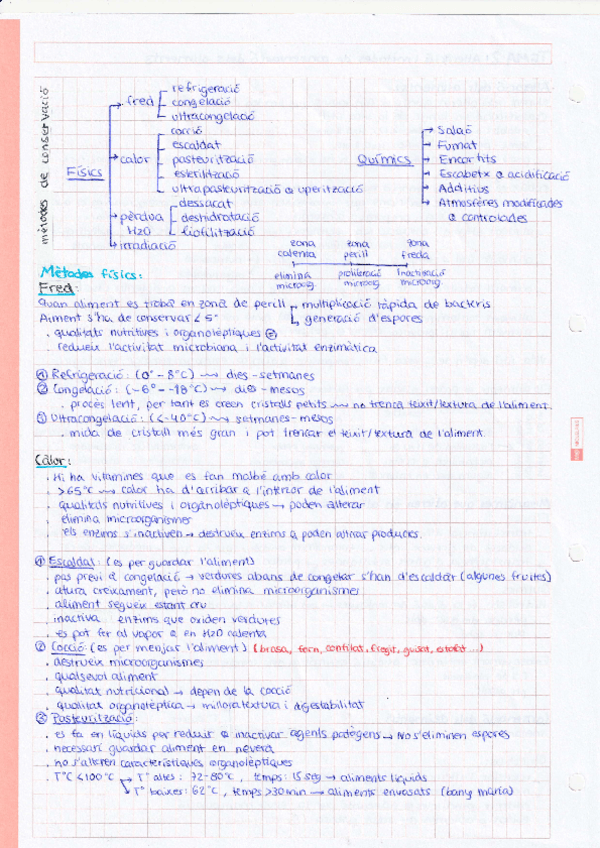 mètodes de conservació
Físics
fred
refrigeració
congelació
ultracongelació
calor
cocció
escaldat
pasteurització
esterilització
ultrapasteurització o uperització
pèrdua H2O
dessacat
deshidratació
liofilització
irradiació
Químics
Salaó
Fumat
Encortits
Escabetx o acidificació
Additius
Atmosferes modificades
o controlades
zona calenta
zona perill
zona freda
elimina microorg
proliferació microorg
inactivació microorg.
Mètodes físics:
Fred:
Quan aliment es troba en zona de perill
multiplicació ràpida de bacteris
generació d'espores
Aliment s'ha de conservar < 5°
. qualitats nutritives i organolèptiques
. redueix l'activitat microbiana i l'activitat enzimàtica
① Refrigeració: (0° - 8°C) → dies - setmanes
② Congelació: (-6° - -18°C) → dies - mesos
. procés lent, per tant es creen cristalls petits → no trenca teixit/textura de l'aliment.
③ Ultracongelació: (<-40°C) → setmanes - mesos
. mida de cristall més gran i pot trencar el teixit/textura de l'aliment.
Calor:
. Hi ha vitamines que es fan malbé amb calor
. >65°C → calor ha d'arribar a l'interior de l'aliment
. qualitats nutritives i organolèptiques → poden alterar
. elimina microorganismes
. els enzims s'inactiven → destrueix enzims q poden alterar productes.
① Escaldat: (es per guardar l'aliment)
. pas previ a congelació → verdures abans de congelar s'han d'escaldar (algunes fruites)
. atura creixament, però no elimina microorganismes
. aliment segueix estant cru
. inactiva enzims que oxiden verdures
. es pot fer al vapor o en H2O calenta
② Cocció: (es per menjar l'aliment) (brasa, forn, confitat, fregit, guisat, estofat ...)
. destrueix microorganismes
. qualsevol aliment
. qualitat nutricional → depen de la cocció
. qualitat organolèptica → millora textura i digestabilitat
③ Pasteurització:
. es fa en líquids per reduir o inactivar agents patògens → No s'eliminen espores
. necessari guardar aliment en nevera
. no s'alteren característiques organolèptiques
. T°C <100°C
T° altes: 72-80°C, temps: 15 seg → aliments líquids
T° baixes: 62°C, temps >30min → aliments envasats (bany maria)